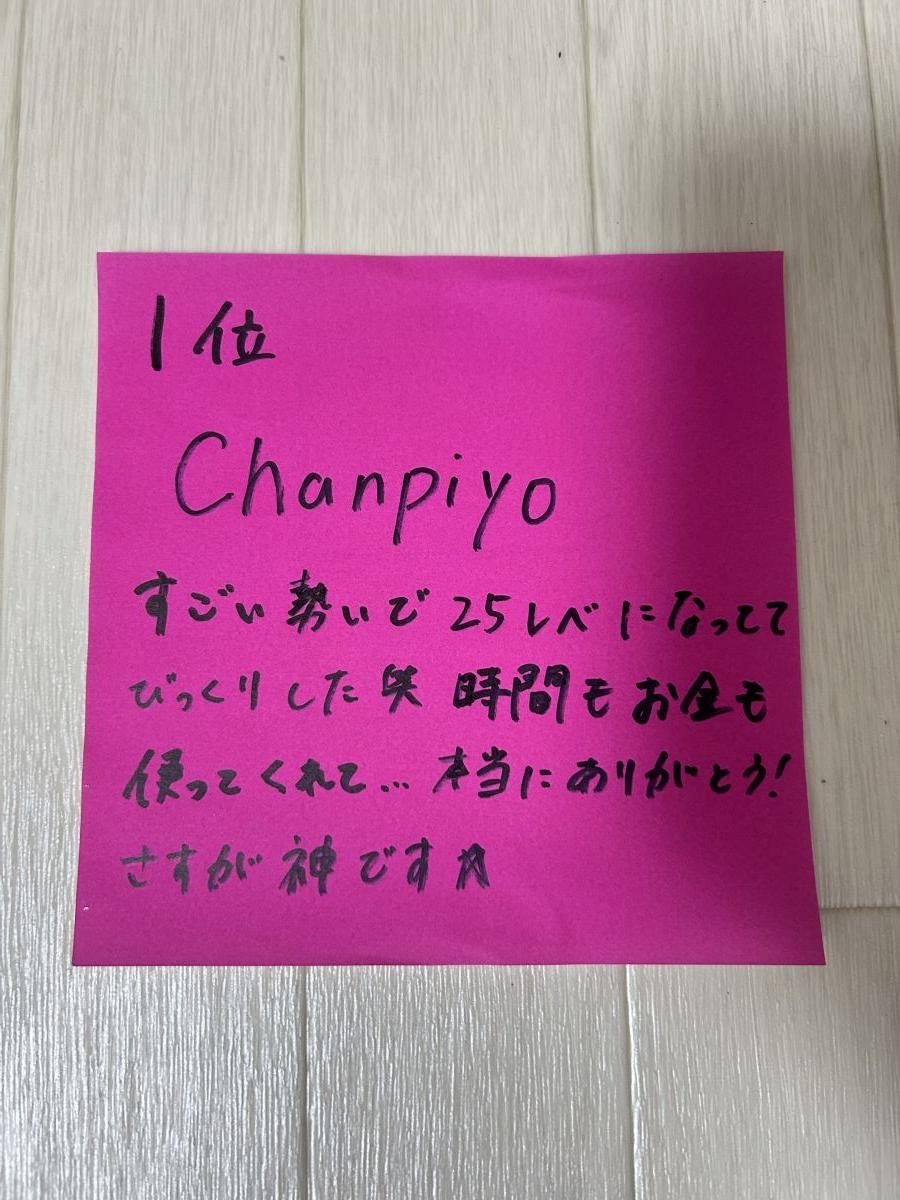 1位
Chanpiyo
すごい勢いで25レベになってて
びっくりした笑 時間もお金も
使ってくれて... 本当にありがとう!
さすが神です☆